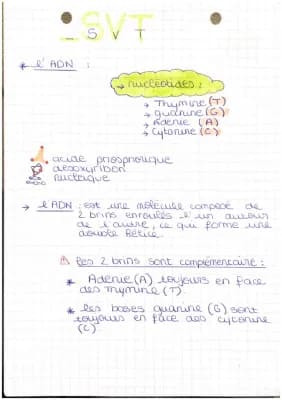 _SVT
* l'ADN :
→ nucléotides :
→ Thymine (T)
→ guanine (G)
→ Adénie (A)
→ Cytonine (C)
acide phosphorique
désoxyribon
nucléique
→ l'ADN : est une molécule composé de
2 brins enroulés l'un autour
de l'autre, ce qui forme une
double hélice.
⚠ Les 2 brins sont complémentaire :
* Adénie (A) toujours en face
des Thymine (T)
* Les bases guanine (G) sont
toujours en face des cytonine
(C)